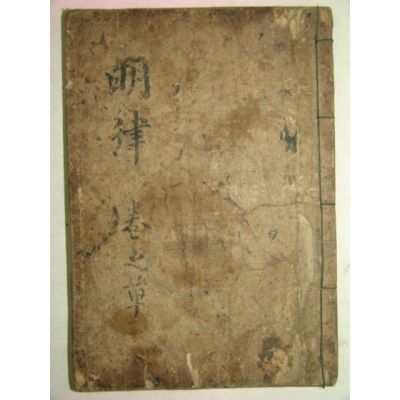 明律 卷之單